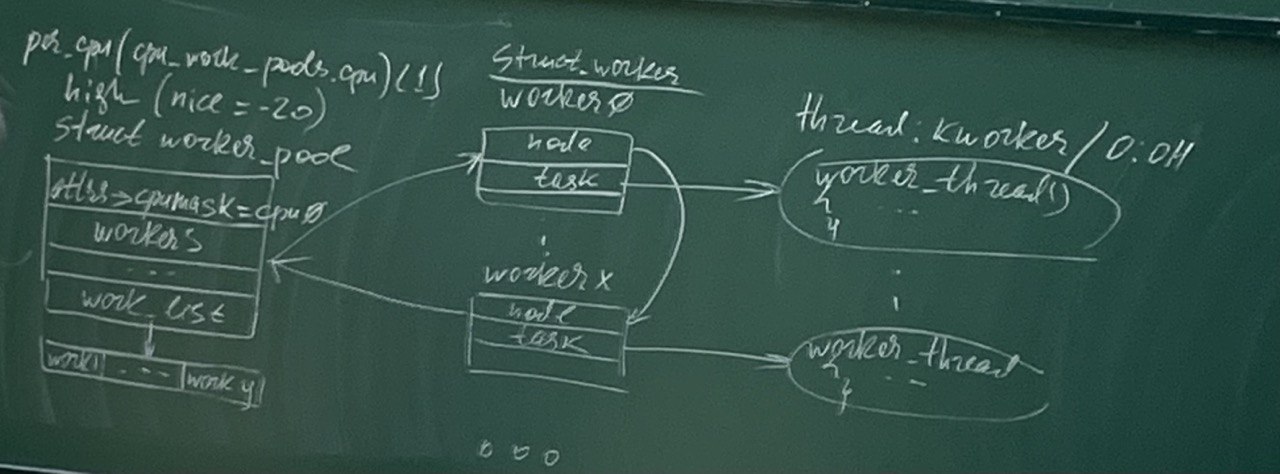 per_cpu(cpu_work_pools.cpu)[1]
high (nice = -20)
struct worker_pool
attrs>cpumask=cpuø
workers
...
work_list
work1 ... work y
struct_worker
workerø
node
task
worker x
node
task
thread: kworker/0:0H
worker_thread()
{ ...
}
worker_thread
{ ...
}